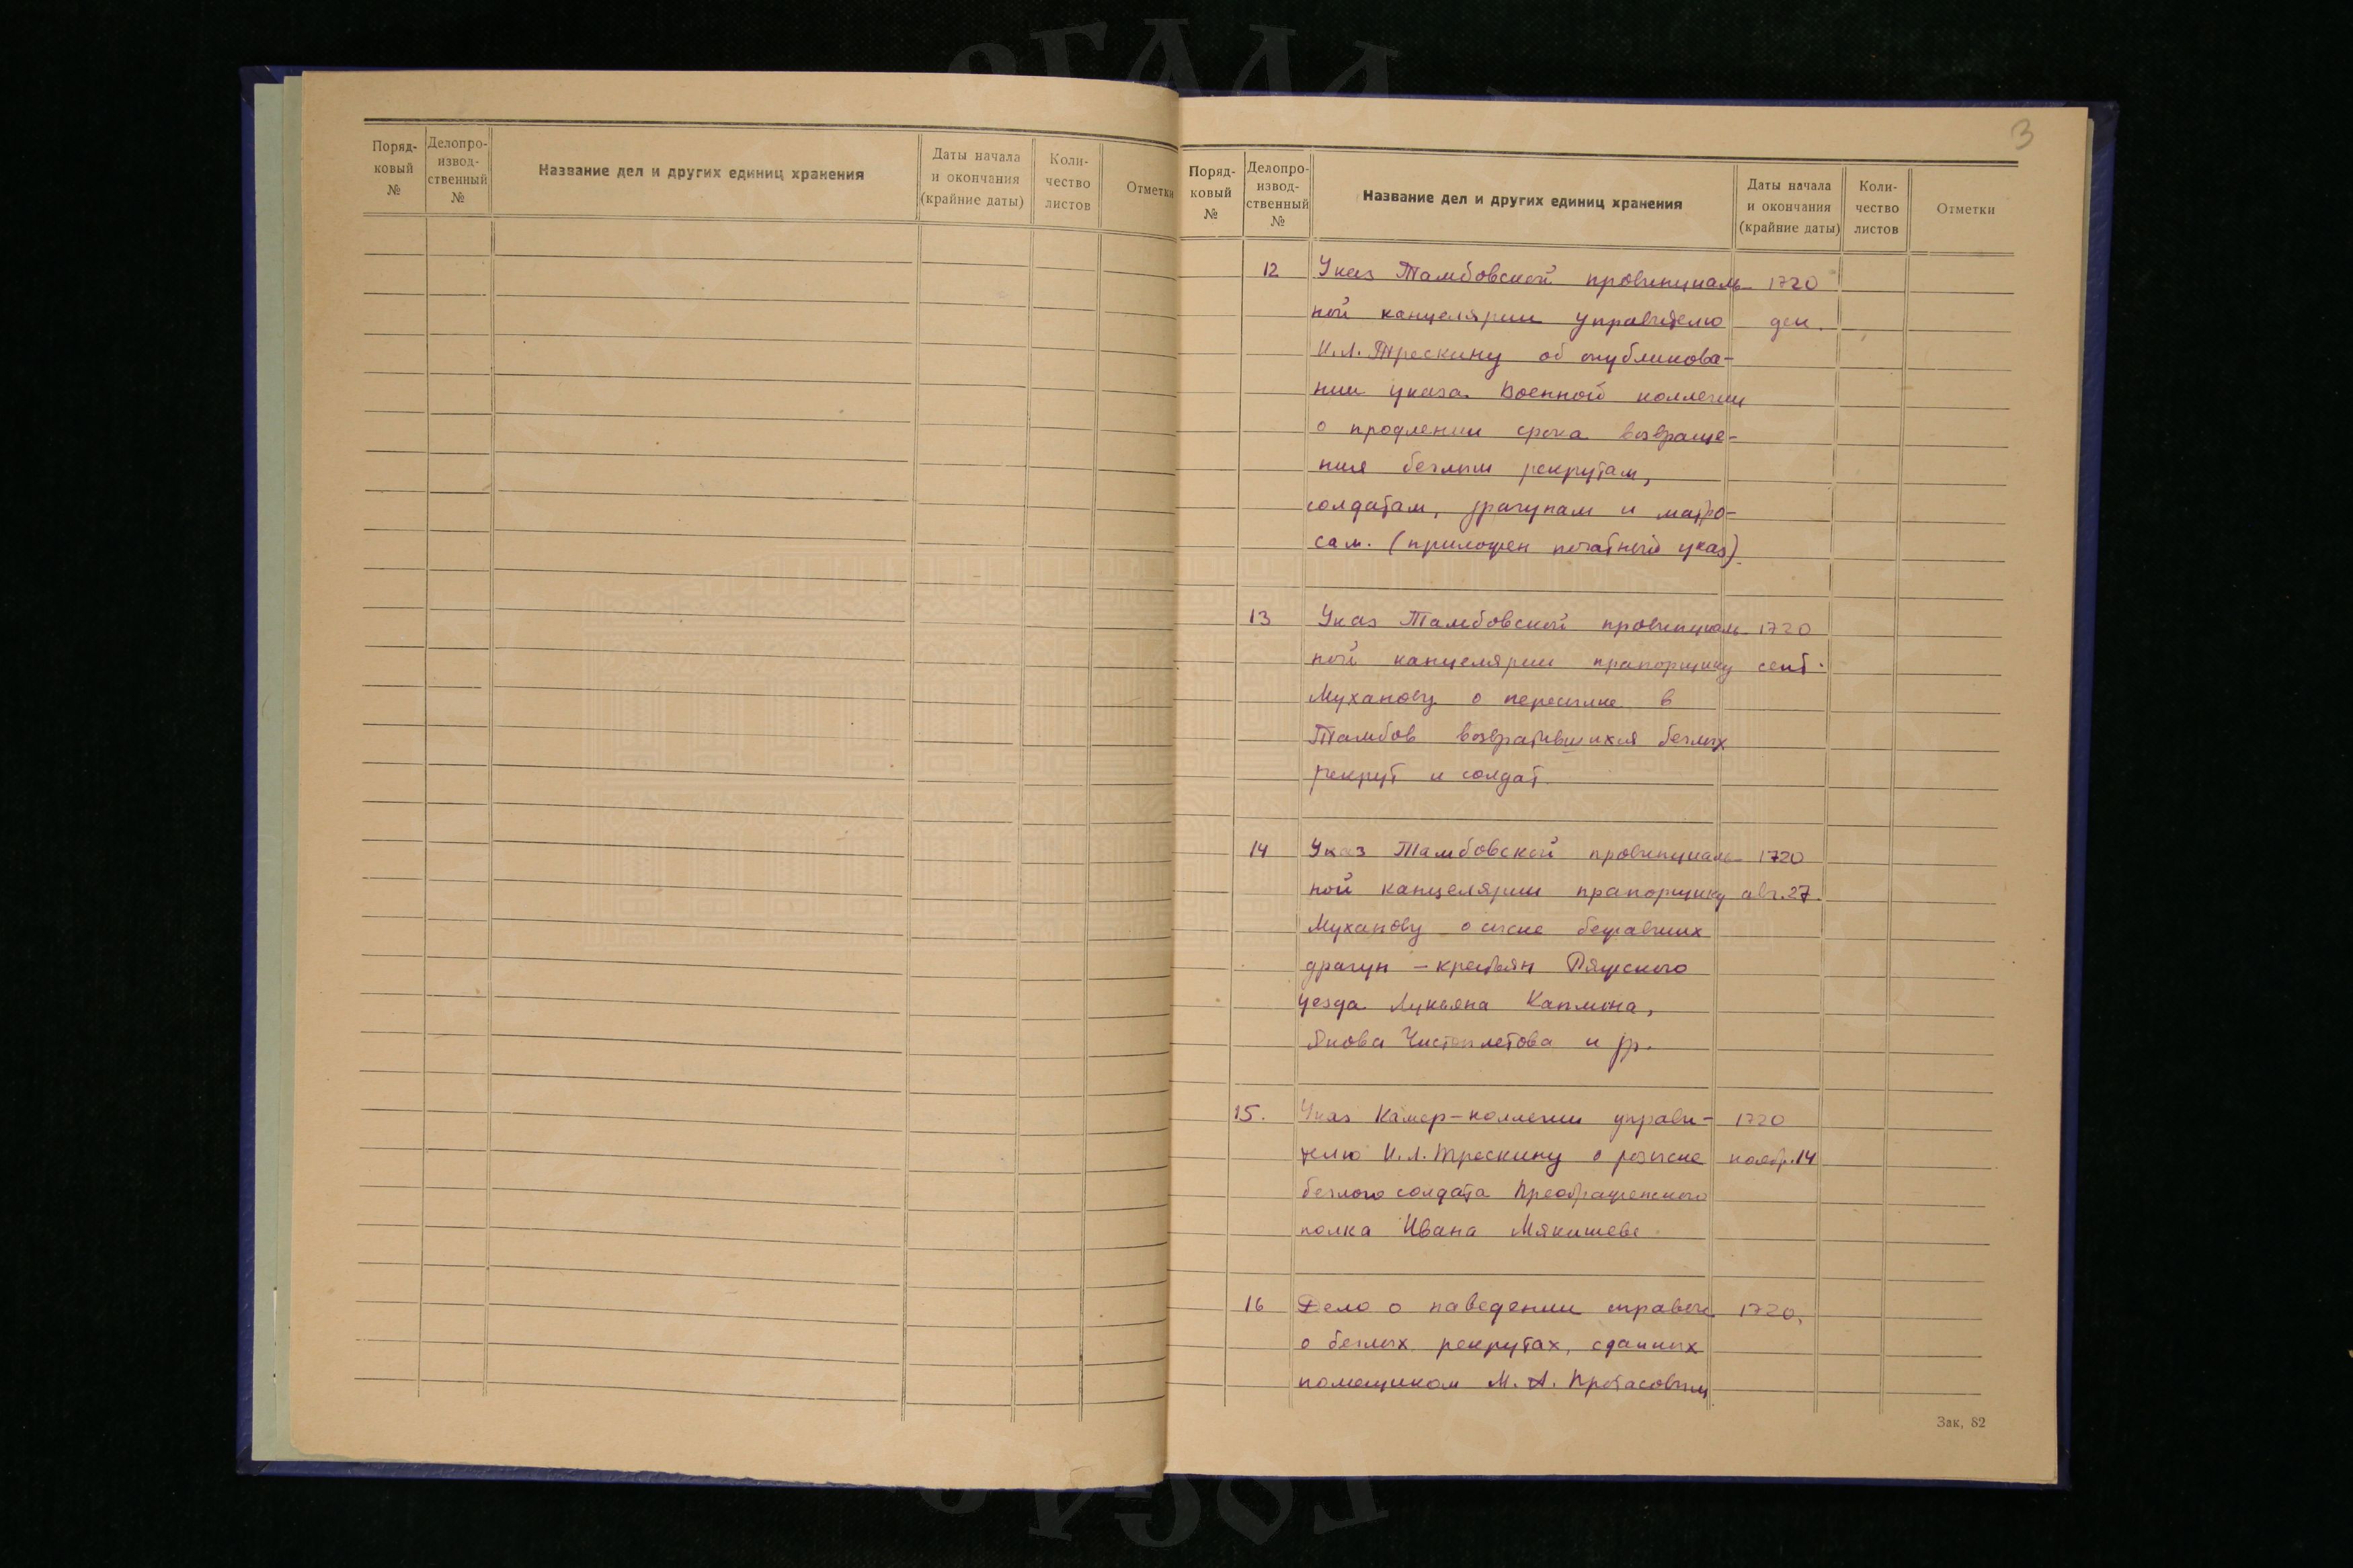 Поряд-
ковый
№
Делопро-
извод-
ственный
№
Название дел и других единиц хранения
Даты начала
и окончания
(крайние даты)
Коли-
чество
листов
Отметки
3
Поряд-
ковый
№
Делопро-
извод-
ственный
№
Название дел и других единиц хранения
Даты начала
и окончания
(крайние даты)
Коли-
чество
листов
Отметки
12 Указ Тамбовской провинциаль- 1720
ной канцелярии управителю дек.
И.Л. Трескину об опубликова-
нии указа Военной коллегии
о продлении срока возвраще-
ния беглым рекрутам,
солдатам, драгунам и матро-
сам. (приложен печатный указ).
13 Указ Тамбовской провинциаль- 1720
ной канцелярии прапорщику сент.
Муханову о пересылке в
Тамбов возвратившихся беглых
рекрут и солдат.
14 Указ Тамбовской провинциаль- 1720
ной канцелярии прапорщику авг. 27.
Муханову о сыске бежавших
драгун - крестьян Ряжского
уезда Лукьяна Каплина,
Якова Чистоплетова и др.
15. Указ Камер-коллегии управи- 1720
телю И.Л. Трескину о розыске ноябр. 14
беглого солдата Преображенского
полка Ивана Мякишева.
16 Дело о наведении справки 1720.
о беглых рекрутах, сданных
помещиком М. А. Протасовым
Зак. 82